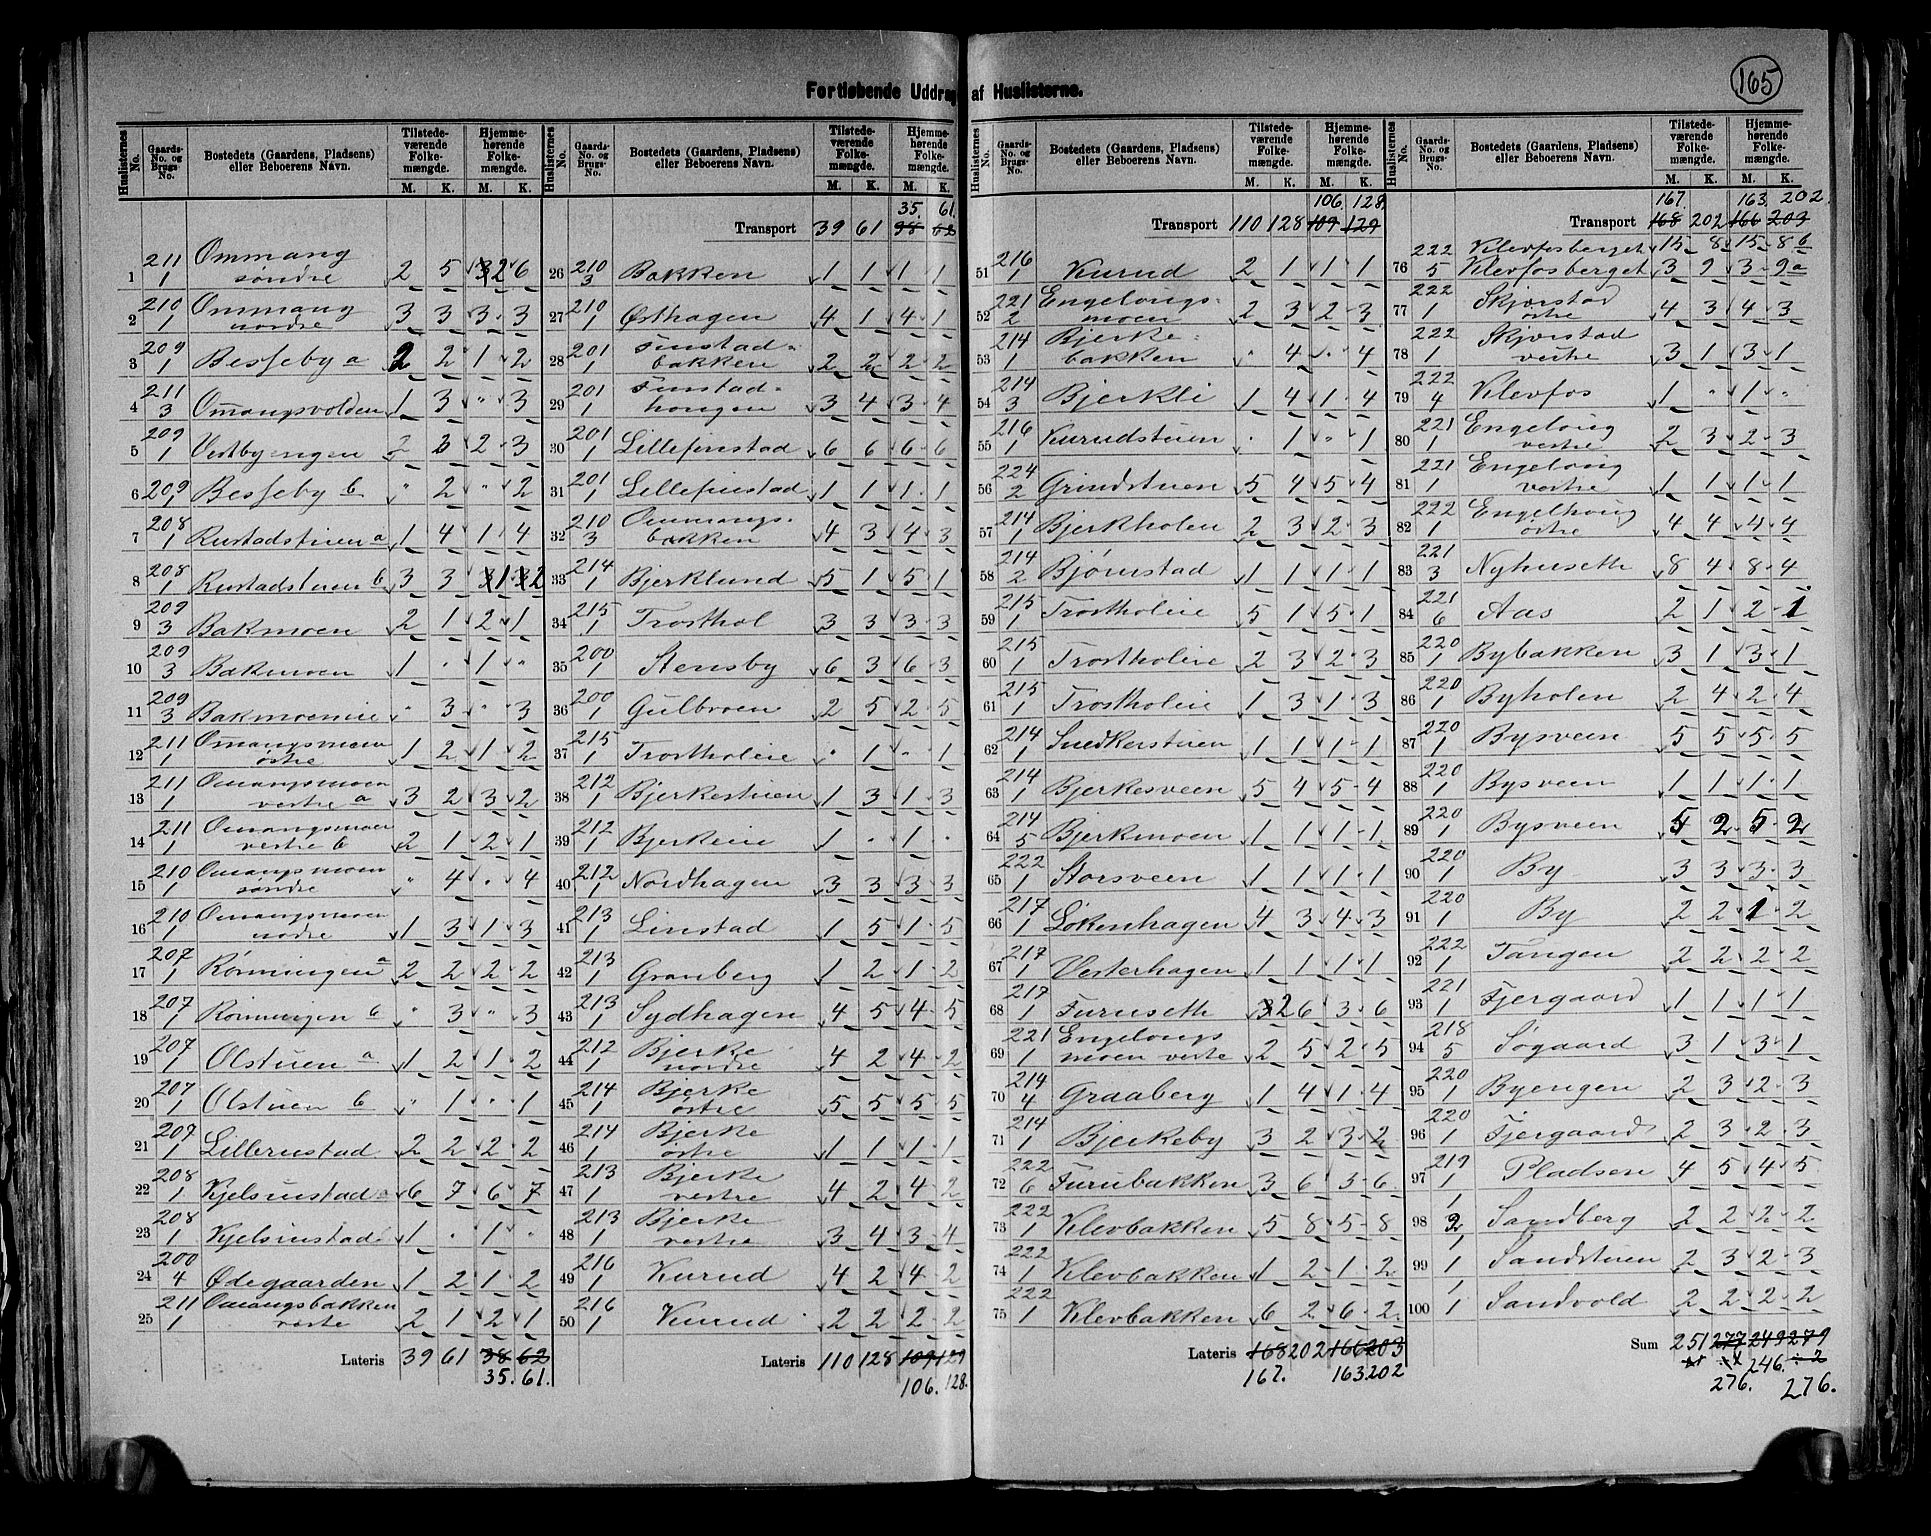 165
Fortløbende Uddrag af Huslisterne.
Huslisternes No. | Gaards-No. og Brugs-No. | Bostedets (Gaardens, Pladsens) eller Beboerens Navn. | Tilstedeværende Folkemængde. M. K. | Hjemmehørende Folkemængde. M. K.
1 211/1 Ommang søndre 2 5 2 6
2 210/1 Ommang nordre 3 3 3 3
3 209/1 Besseby a 2 2 1 2
4 211/3 Omangsvolden 1 3 " 3
5 209/1 Vestbyengen 2 3 2 3
6 209/1 Besseby b " 2 " 2
7 208/1 Rustadstuen a 1 4 1 4
8 208/1 Rustadstuen b 3 3 1 2
9 209/3 Bakmoen 2 1 2 1
10 209/3 Bakmoen 1 " 1 "
11 209/3 Bakmoeneie " 3 " 3
12 211/1 Omangsmoen østre 1 2 1 2
13 211/1 Omangsmoen vestre a 3 2 3 2
14 211/1 Omangsmoen vestre b 2 1 2 1
15 210/1 Omangsmoen søndre " 4 " 4
16 210/1 Omangsmoen nordre 1 3 1 3
17 207/1 Rønningen a 2 2 2 2
18 207/1 Rønningen b " 3 " 3
19 207/1 Olstuen a 1 2 1 2
20 207/1 Olstuen b " 1 " 1
21 207/1 Lillerustad 2 2 2 2
22 208/1 Kjelsrustad 6 7 6 7
23 208/1 Kjelsrustad 1 " 1 "
24 200/4 Ødegaarden 1 2 1 2
25 211/1 Omangsbakken vestre 2 1 2 1
Lateris 39 61 38 62
35. 61.
35. 61.
Transport 39 61 38 62
26 210/3 Bakken 1 1 1 1
27 210/1 Østhagen 4 1 4 1
28 201/1 Finstadbakken 2 2 2 2
29 201/1 Finstadhougen 3 4 3 4
30 201/1 Lillefinstad 6 6 6 6
31 201/1 Lillefinstad 1 1 1 1
32 210/3 Ommangsbakken 4 3 4 3
33 214/1 Bjerklund 5 1 5 1
34 215/1 Trosthol 3 3 3 3
35 200/1 Stensby 6 3 6 3
36 200/1 Gulbroen 2 5 2 5
37 215/1 Trostholeie " 1 " 1
38 212/1 Bjerkestuen 1 3 1 3
39 212/5 Bjerkeie 1 " 1 "
40 212/1 Nordhagen 3 3 3 3
41 213/1 Linstad 1 5 1 5
42 213/1 Granberg 1 2 1 2
43 213/1 Sydhagen 4 5 4 5
44 212/1 Bjerke nordre 4 2 4 2
45 214/1 Bjerke østre 5 5 5 5
46 214/1 Bjerke østre 1 1 1 1
47 213/1 Bjerke vestre 4 2 4 2
48 213/1 Bjerke vestre 3 4 3 4
49 216/1 Kurud 4 2 4 2
50 216/1 Kurud 2 2 2 2
Lateris 110 128 109 129
106. 128.
106. 128.
Transport 110 128 109 129
51 216/1 Kurud 2 1 1 1
52 221/2 Engelougsmoen 2 3 2 3
53 214/1 Bjerkebakken " 4 " 4
54 214/3 Bjerkli 1 4 1 4
55 216/1 Kurudstuen " 1 " 1
56 224/2 Grindstuen 5 4 5 4
57 214/1 Bjerkholen 2 3 2 3
58 214/2 Bjørnstad 1 1 1 1
59 215/1 Trostholeie 5 1 5 1
60 215/1 Trostholeie 2 3 2 3
61 215/1 Trostholeie 1 3 1 3
62 214/1 Snedkerstuen 1 1 1 1
63 214/1 Bjerkesveen 5 4 5 4
64 214/5 Bjerkmoen 1 1 1 1
65 222/1 Storsveen 1 1 1 1
66 217/1 Løkenhagen 4 3 4 3
67 217/1 Vesterhagen 1 1 1 1
68 217/1 Furuseth 2 6 3 6
69 221/1 Engelougsmoen vestre 2 5 2 5
70 214/4 Graaberg 1 4 1 4
71 214/1 Bjerkeby 3 2 3 2
72 222/6 Furubakken 3 6 3 6
73 222/1 Klevbakken 5 8 5 8
74 222/1 Klevbakken 1 2 1 2
75 222/1 Klevbakken 6 2 6 2
Lateris 168 202 166 203
167. 163 202
167. 163. 202.
Transport 168 202 166 203
Klevfosberget 15 8 15 8 b
76 222/5 Klevfosberget 3 9 3 9 a
77 222/1 Skjørstad østre 4 3 4 3
78 222/1 Skjørstad vestre 3 1 3 1
79 222/4 Klevfos 1 " 1 "
80 221/1 Engeloug vestre 2 3 2 3
81 221/1 Engeloug vestre 1 1 1 1
82 222/1 Engelhoug østre 4 4 4 4
83 221/3 Nyhuseth 8 4 8 4
84 221/6 Aas 2 1 2 1
85 220/1 Bybakken 3 1 3 1
86 220/1 Byholen 2 4 2 4
87 220/1 Bysveen 5 5 5 5
88 220/1 Bysveen 1 1 1 1
89 220/1 Bysveen 5 2 5 2
90 220/1 By 3 3 3 3
91 220/1 By 2 2 1 2
92 222/1 Tangen 2 2 2 2
93 221/1 Fjergaard 1 1 1 1
94 218/5 Søgaard 3 1 3 1
95 220/1 Byengen 2 3 2 3
96 220/1 Fjergaard 2 3 2 3
97 219/1 Pladsen 4 5 4 5
98 1/2 Sandberg 2 2 2 2
99 1/1 Sandstuen 2 3 2 3
100 1/1 Sandvold 2 2 2 2
Sum 251 277 249 279
246.
276. 276.